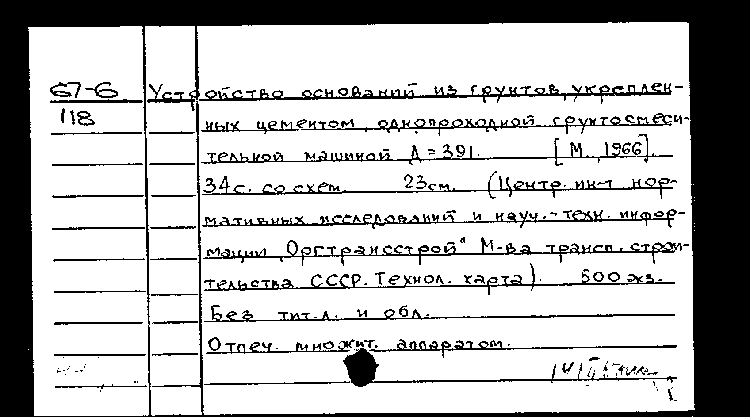 67-6 Устройство оснований из грунтов, укреплен-
118 ных цементом, однопроходной грунтосмеси-
тельной машиной Д-391. [М., 1966].
34 с. со схем. 23 см. (Центр. ин-т нор-
мативных исследований и науч.-техн. инфор-
мации „Оргтрансстрой" М-ва трансп. строи-
тельства СССР. Технол. карта). 500 экз.
Без тит. л. и обл.
Отпеч. множит. аппаратом.